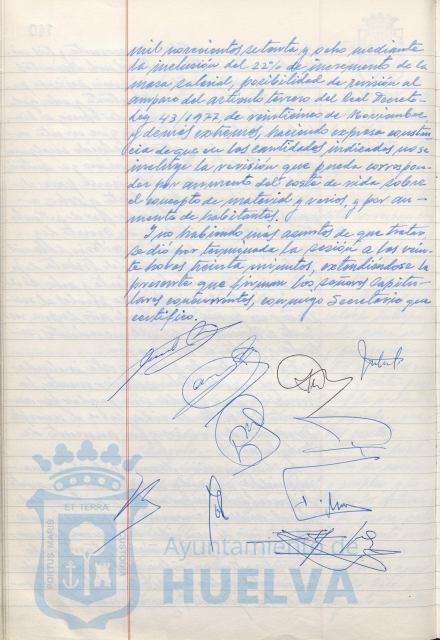 mil novecientos setenta y ocho mediante
la inclusión del 22% de incremento de la
masa salarial, posibilidad de revisión al
amparo del artículo tercero del Real Decreto-
Ley 43/1977, de veinticinco de Noviembre,
y demás extremos, haciendo expresa constan-
cia de que en las cantidades indicadas no se
incluye la revisión que pueda correspon-
der por aumento del coste de vida sobre
el concepto de material y varios, y por au-
mento de habitantes.
Y no habiendo más asuntos de que tratar,
se dió por terminada la sesión a las vein-
te horas treinta minutos, extendiéndose la
presente que firman los señores Capitu-
lares concurrentes, conmigo Secretario que
certifico.
ET TERRA
PORTUS MARIS
CUSTODIA
Ayuntamiento de
HUELVA